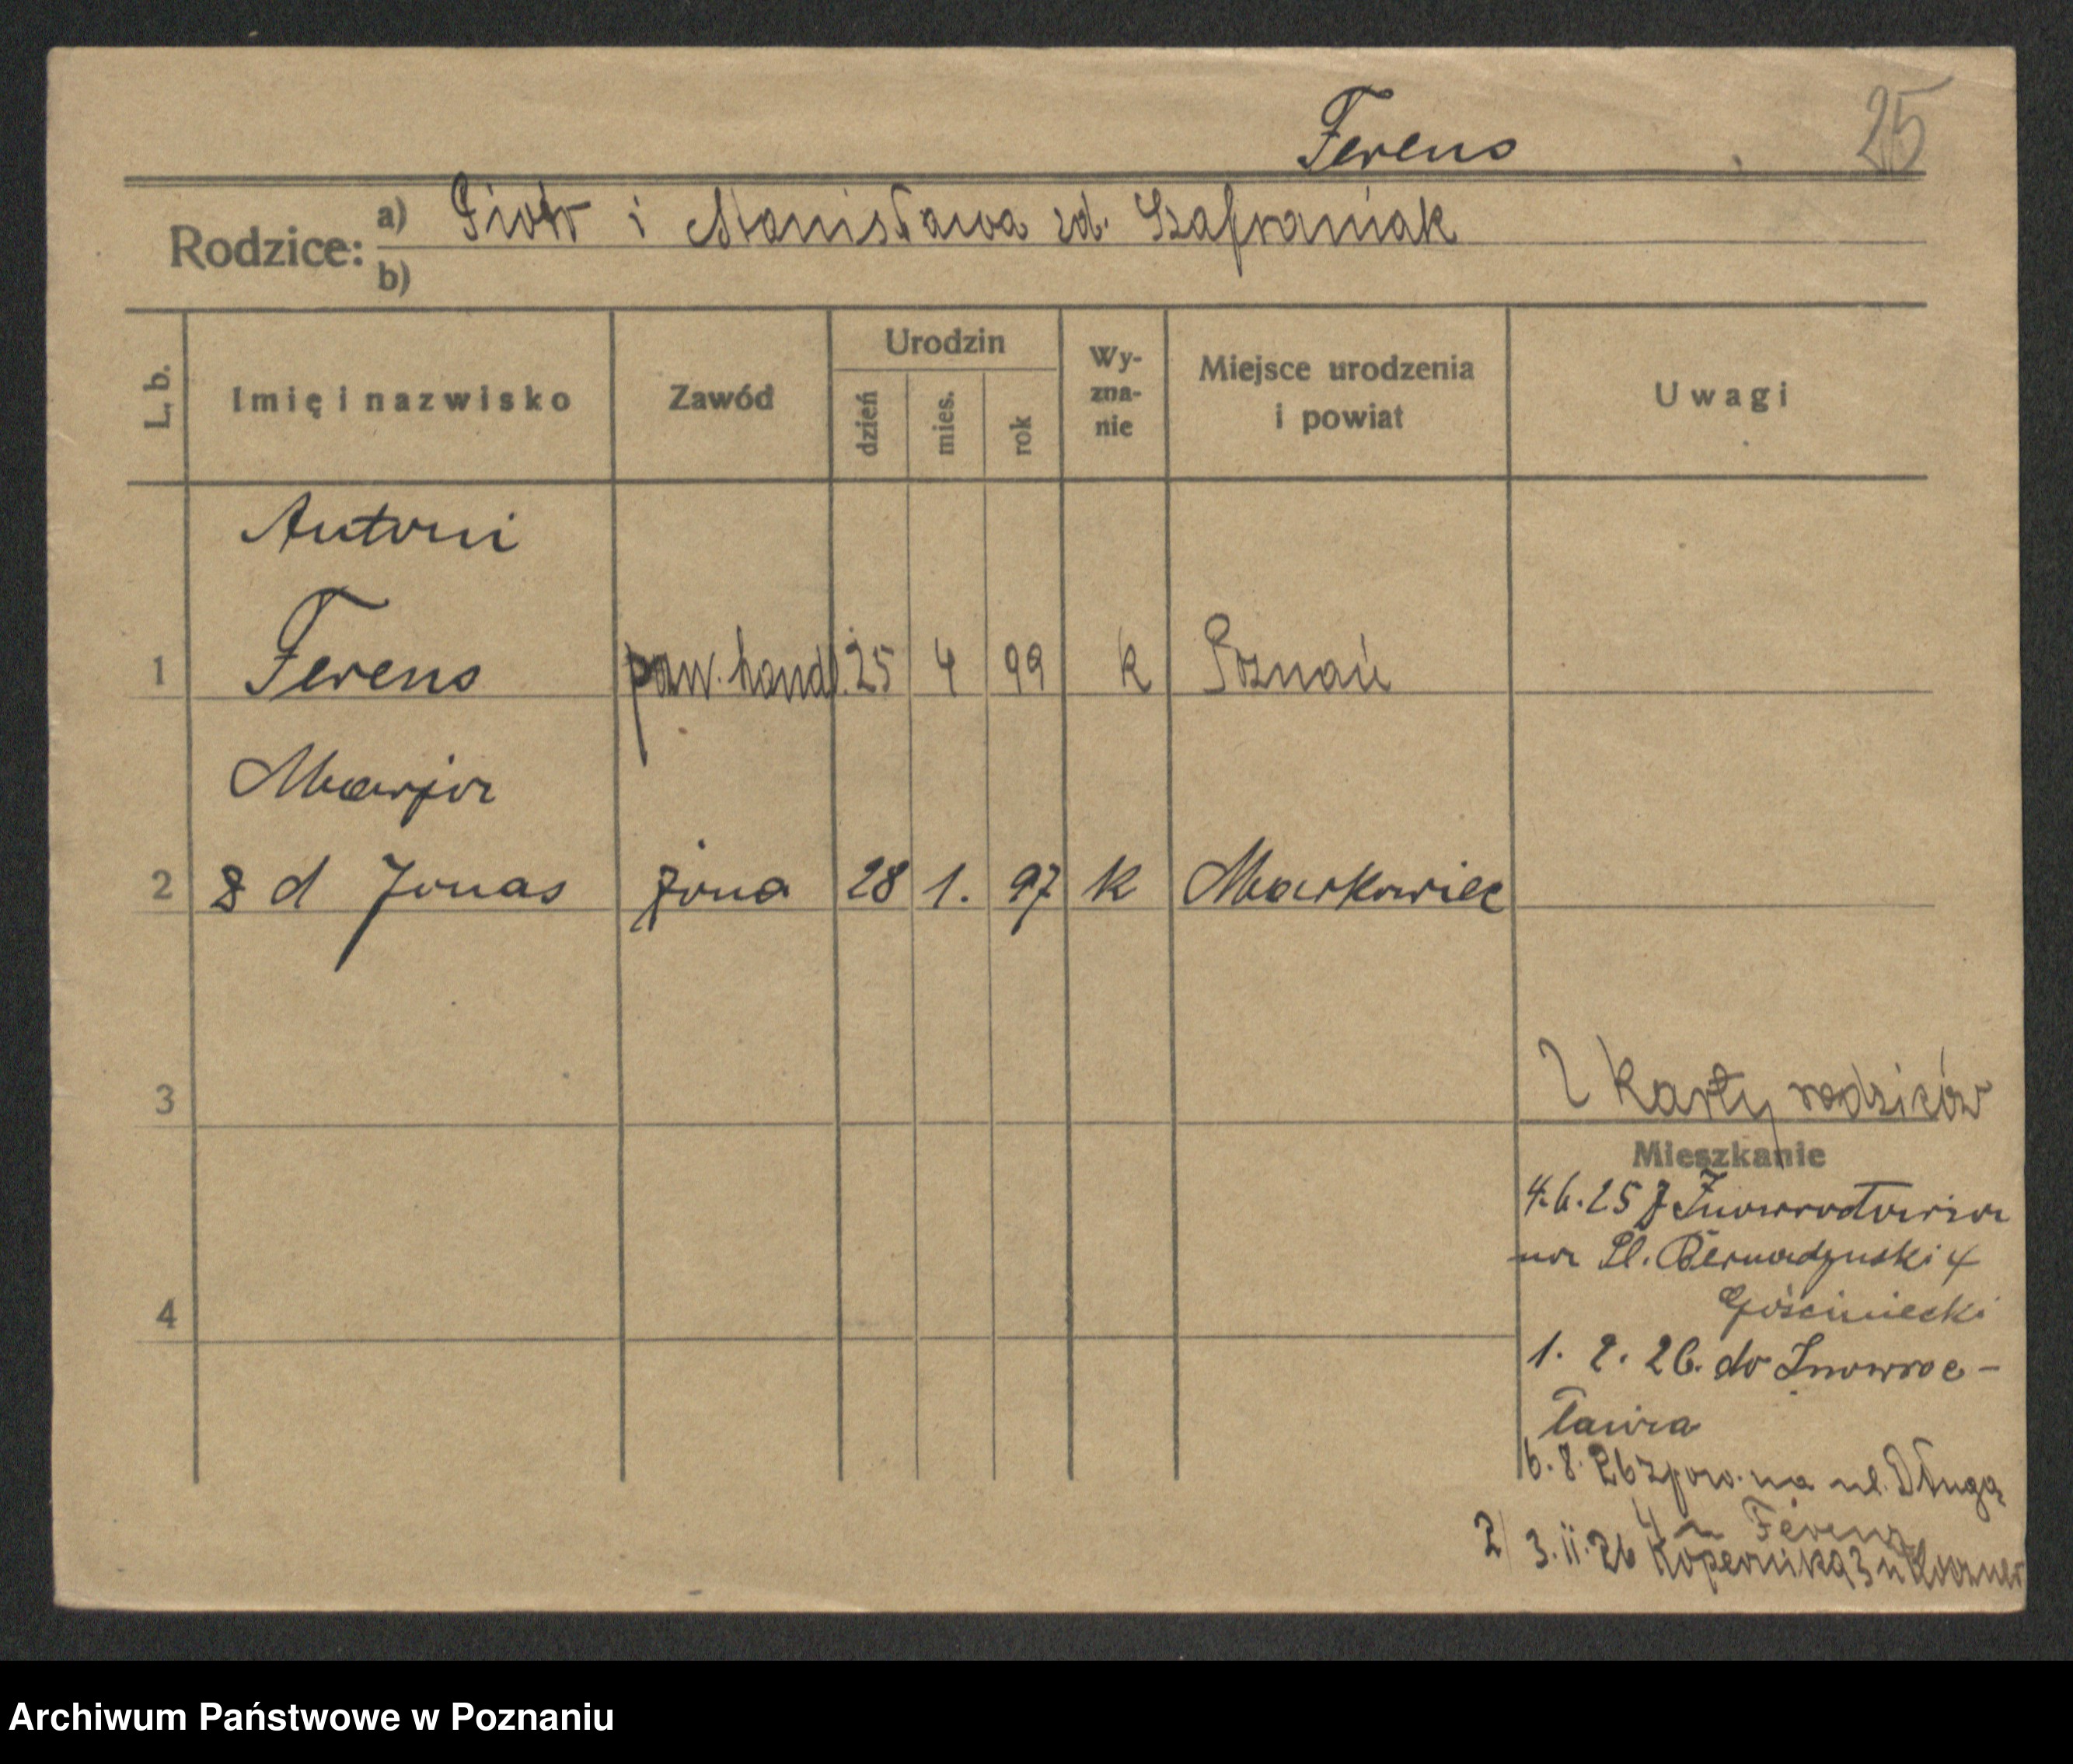 Ferens 25
Rodzice: a) Piotr i Stanisława zd. Szafraniak
b)
L. b. Imię i nazwisko Zawód Urodzin dzień mies. rok Wyznanie Miejsce urodzenia i powiat Uwagi
Antoni
1 Ferens pow. handl. 25 4 99 k Poznań
Marja
2 z d Jonas żona 28 1. 97 k Markowice
3
Z karty rodziców
Mieszkanie
4.6.25 z Inowrocławia
na Pl. Bernadyński 4
Gościniecki
4
1. 2. 26. do Inowroc-
ławia
6. 8. 26 zpow. na ul. Długą
4 u Ferens
2/ 3.11.26 Kopernika 3 u
Archiwum Państwowe w Poznaniu